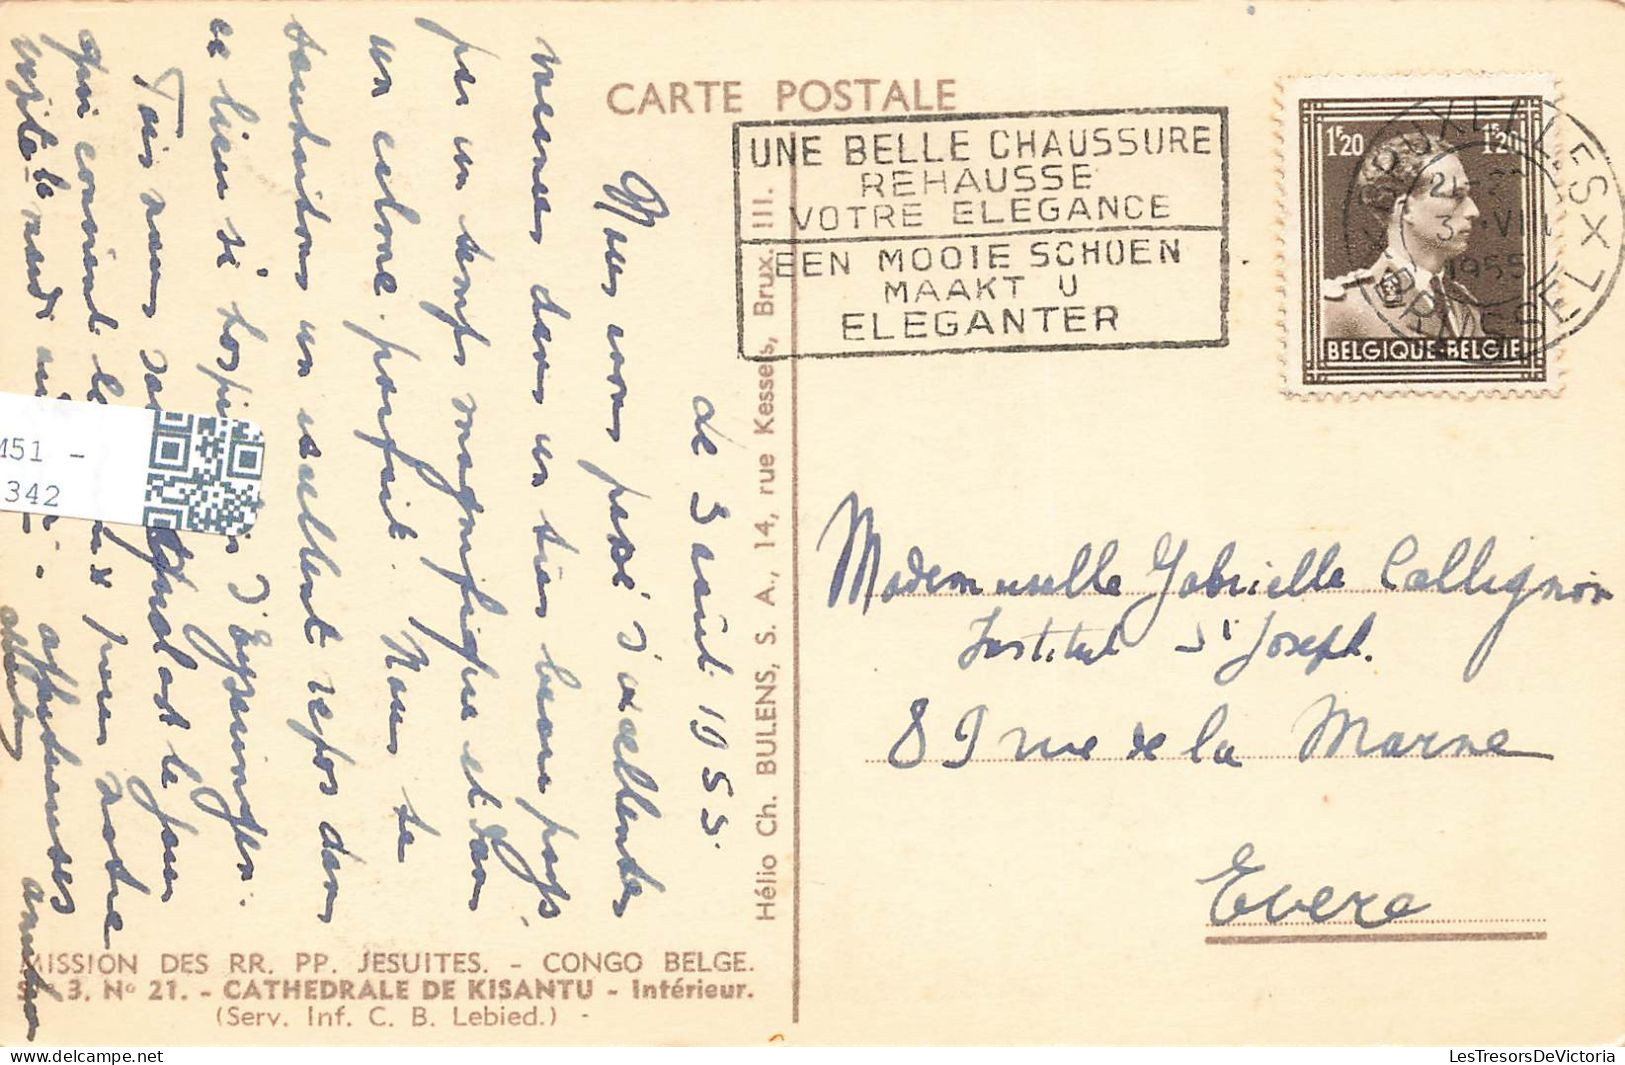 CARTE POSTALE
UNE BELLE CHAUSSURE
REHAUSSE
VOTRE ELEGANCE
EEN MOOIE SCHOEN
MAAKT U
ELEGANTER
1F20 1F20
BELGIQUE·BELGIE
BRUXELLES X 7
3 VIII
1955
BRUSSEL
le 3 août 1955
Nous avons passé d'excellentes
vacances dans un très beau pays
par un temps magnifique et dans
un calme parfait. Nous te
souhaitons un excellent repos dans
ce lieu si d'Eysingen.
Fais nous le jour
qui convient le mieux pour notre
visite le mardi
affectueuses amitiés
Mademoiselle Gabrielle Collignon
Institut St Joseph.
89 rue de la Marne
Evere
Hélio Ch. BULENS, S. A., 14, rue Kessels, Brux. III.
MISSION DES RR. PP. JESUITES. - CONGO BELGE.
3. No 21. - CATHEDRALE DE KISANTU - Intérieur.
(Serv. Inf. C. B. Lebied.)
M51 -
342
LesTresorsDeVictoria.com